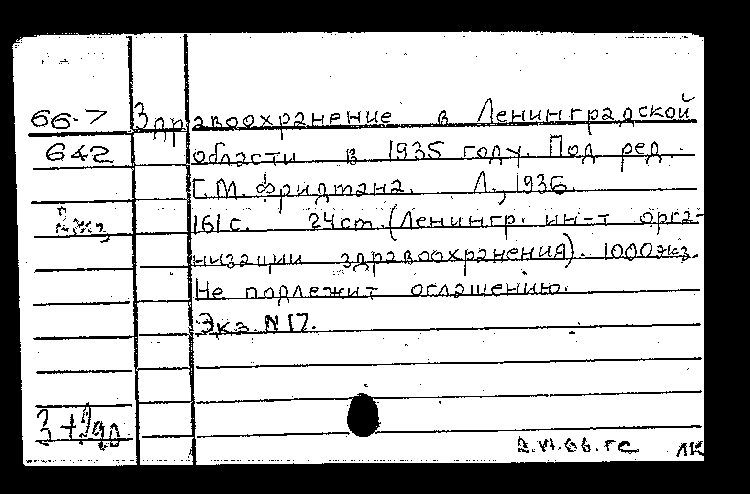 66-7 Здравоохранение в Ленинградской
642 области в 1935 году. Под ред.
Г.М. Фридтана. Л., 1936.
2 экз 161 с. 24 ст. (Ленингр. ин-т орга-
низации здравоохранения). 1000 экз.
Не подлежит оглашению.
Экз. N 17.
2.VI.66. гс ЛК